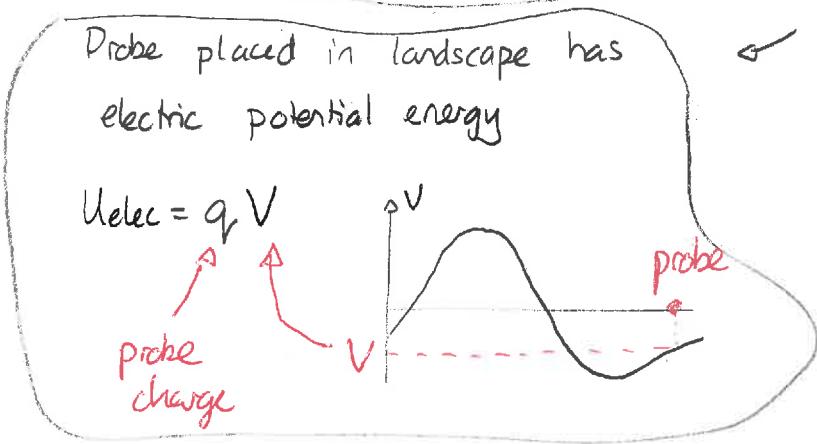 Probe placed in landscape has
electric potential energy
Uelec = qV
V
probe
probe
charge
V